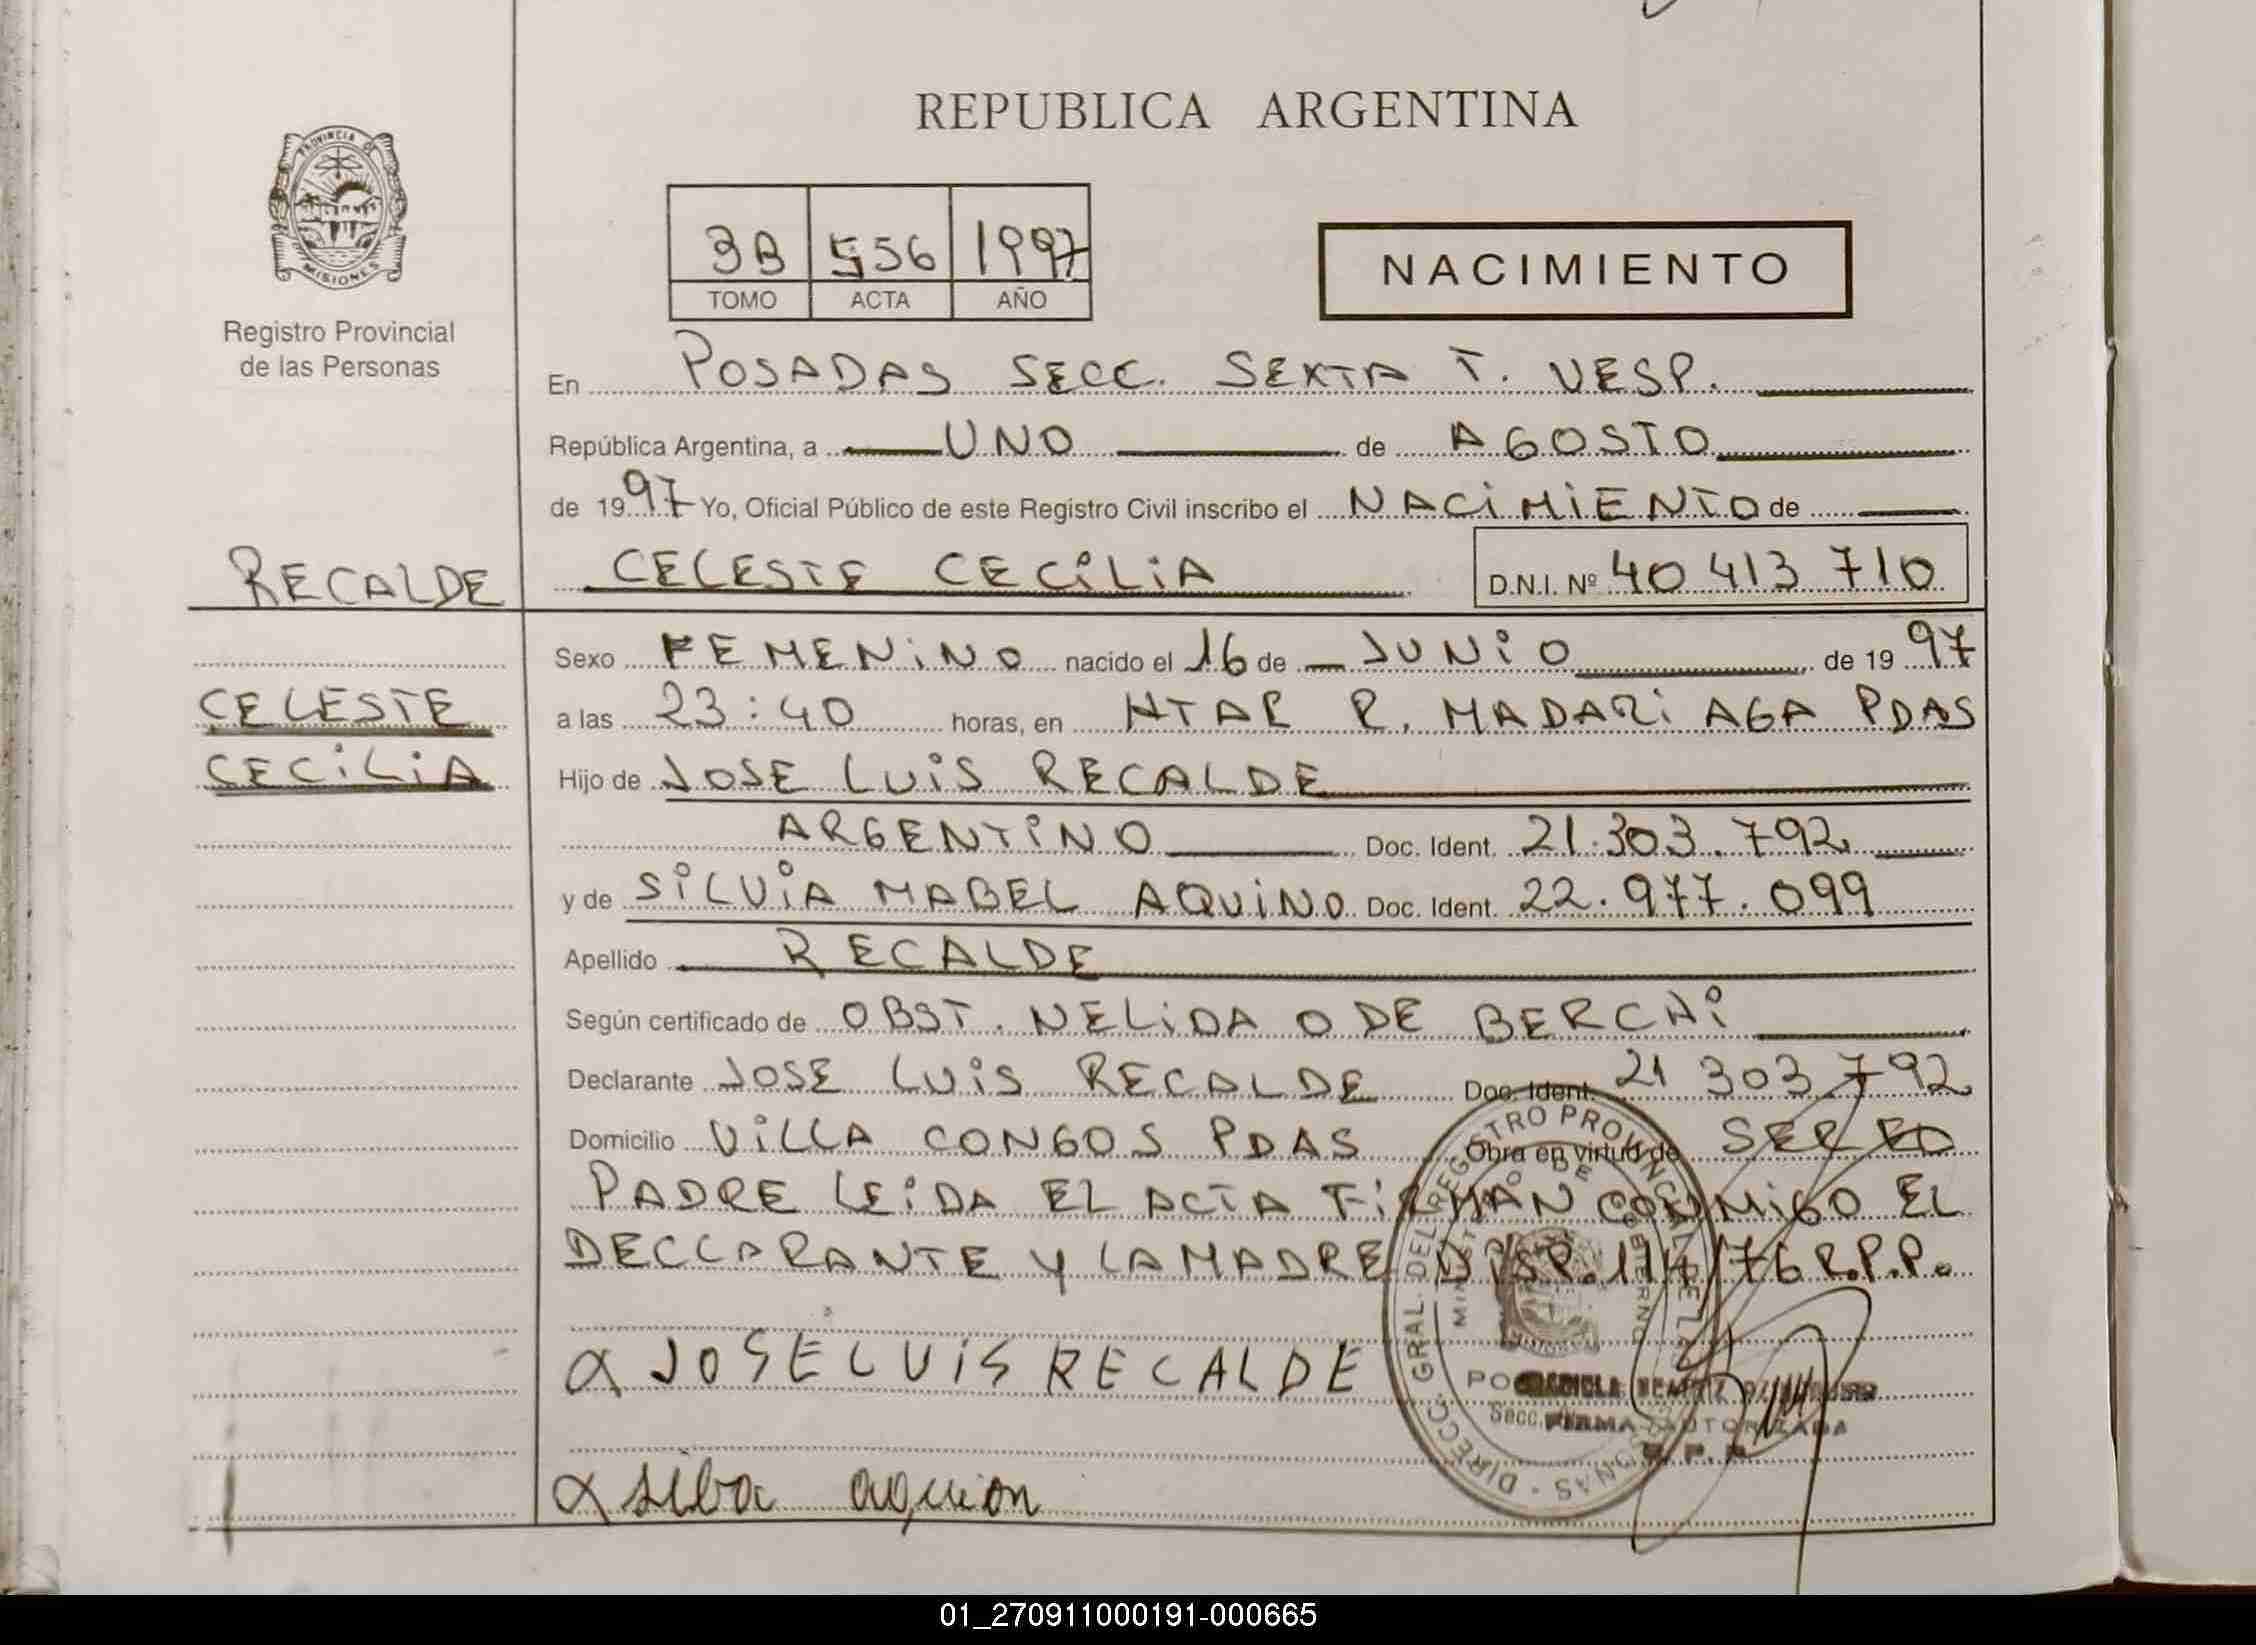 REPUBLICA ARGENTINA
PROVINCIA DE
MISIONES
Registro Provincial
de las Personas
3B 556 1997
TOMO ACTA AÑO
NACIMIENTO
En POSADAS SECC. SEXTA T. VESP.
República Argentina, a UNO de AGOSTO
de 1997 Yo, Oficial Público de este Registro Civil inscribo el NACIMIENTO de
RECALDE
CELESTE CECILIA D.N.I. Nº 40 413 710
Sexo FEMENINO nacido el 16 de JUNIO de 1997
CELESTE
a las 23:40 horas, en HTAL R. MADARIAGA PDAS
CECILIA
Hijo de JOSE LUIS RECALDE
ARGENTINO Doc. Ident. 21.303.792
y de SILVIA MABEL AQUINO Doc. Ident. 22.977.099
Apellido RECALDE
Según certificado de OBST. NELIDA O DE BERCHI
Declarante JOSE LUIS RECALDE Doc. Ident. 21 303 792
Domicilio VILLA CONGOS PDAS Obra en virtud de SER ED
PADRE LEIDA EL ACTA FIRMAN CONMIGO EL
DECLARANTE Y LA MADRE DISP. 114/76 R.P.P.
JOSE LUIS RECALDE
DIRECC. GRAL. DEL REGISTRO PROVINCIAL DE LAS PERSONAS
MINISTERIO DE GOBIERNO
Secc.
FIRMA AUTORIZADA
R. P. P.
01_270911000191-000665